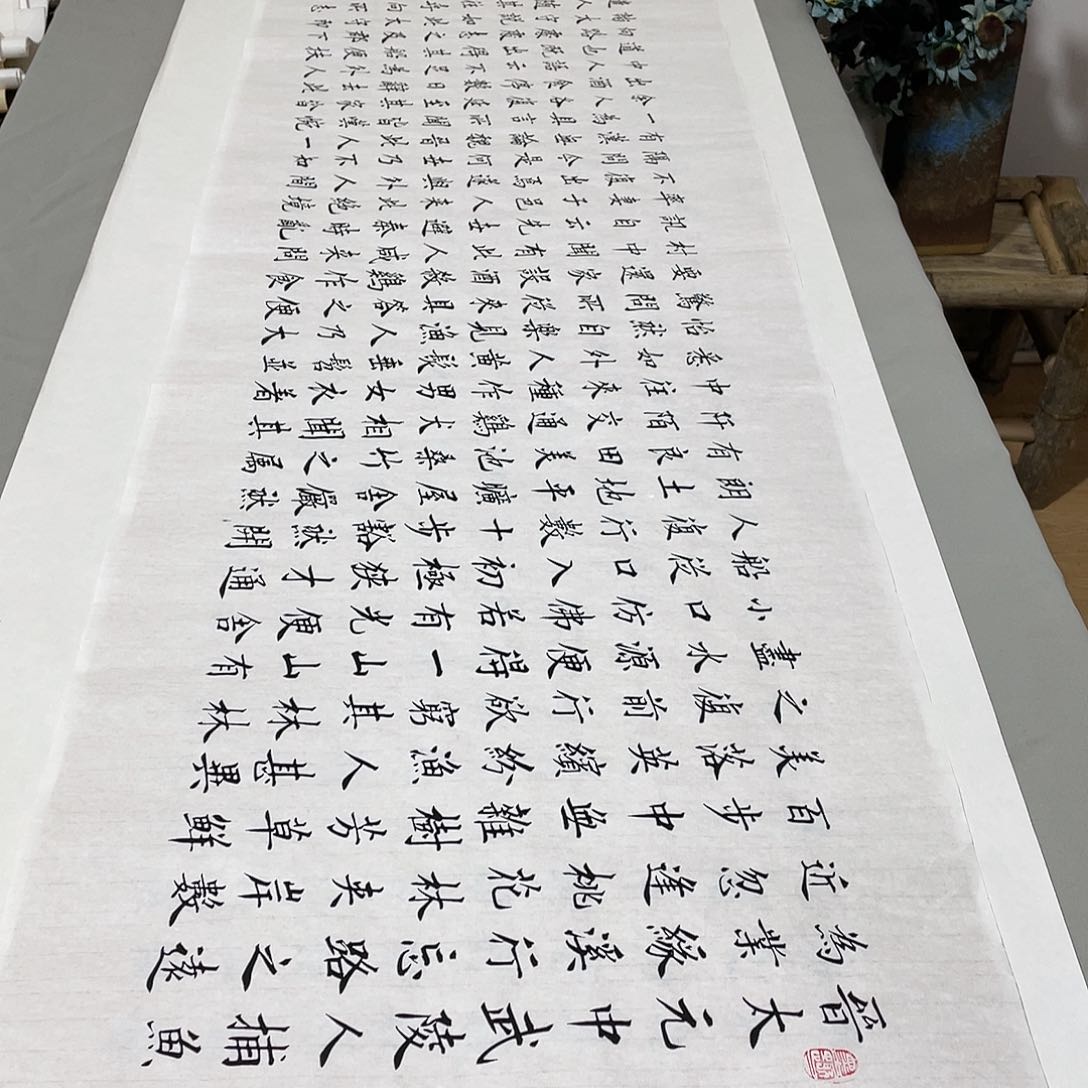 晉太元中武陵人捕魚
為業緣溪行忘路之遠
近忽逢桃花林夾岸數
百步中無雜樹芳草鮮
美落英繽紛漁人甚異
之復前行欲窮其林林
盡水源便得一山山有
小口仿佛若有光便舍
船從口入初極狹才通
人復行數十步豁然開
朗土地平曠屋舍儼然
有良田美池桑竹之屬
阡陌交通鷄犬相聞其
中往來種作男女衣著
悉如外人黃髮垂髫並
怡然自樂見漁人乃大
驚問所從來具答之便
要還家設酒殺鷄作食
村中聞有此人咸來問
訊自云先世避秦時亂
率妻子邑人來此絕境
不復出焉遂與外人間
隔問今是何世乃不知
有漢無論魏晉此人一
一為具言所聞皆嘆惋
余人各復延至其家皆
出酒食停數日辭去此
中人語云不足為外人
道也既出得其船便扶
向路處處志之及郡下
詣太守說如此太守即
遣人隨其往尋向所志